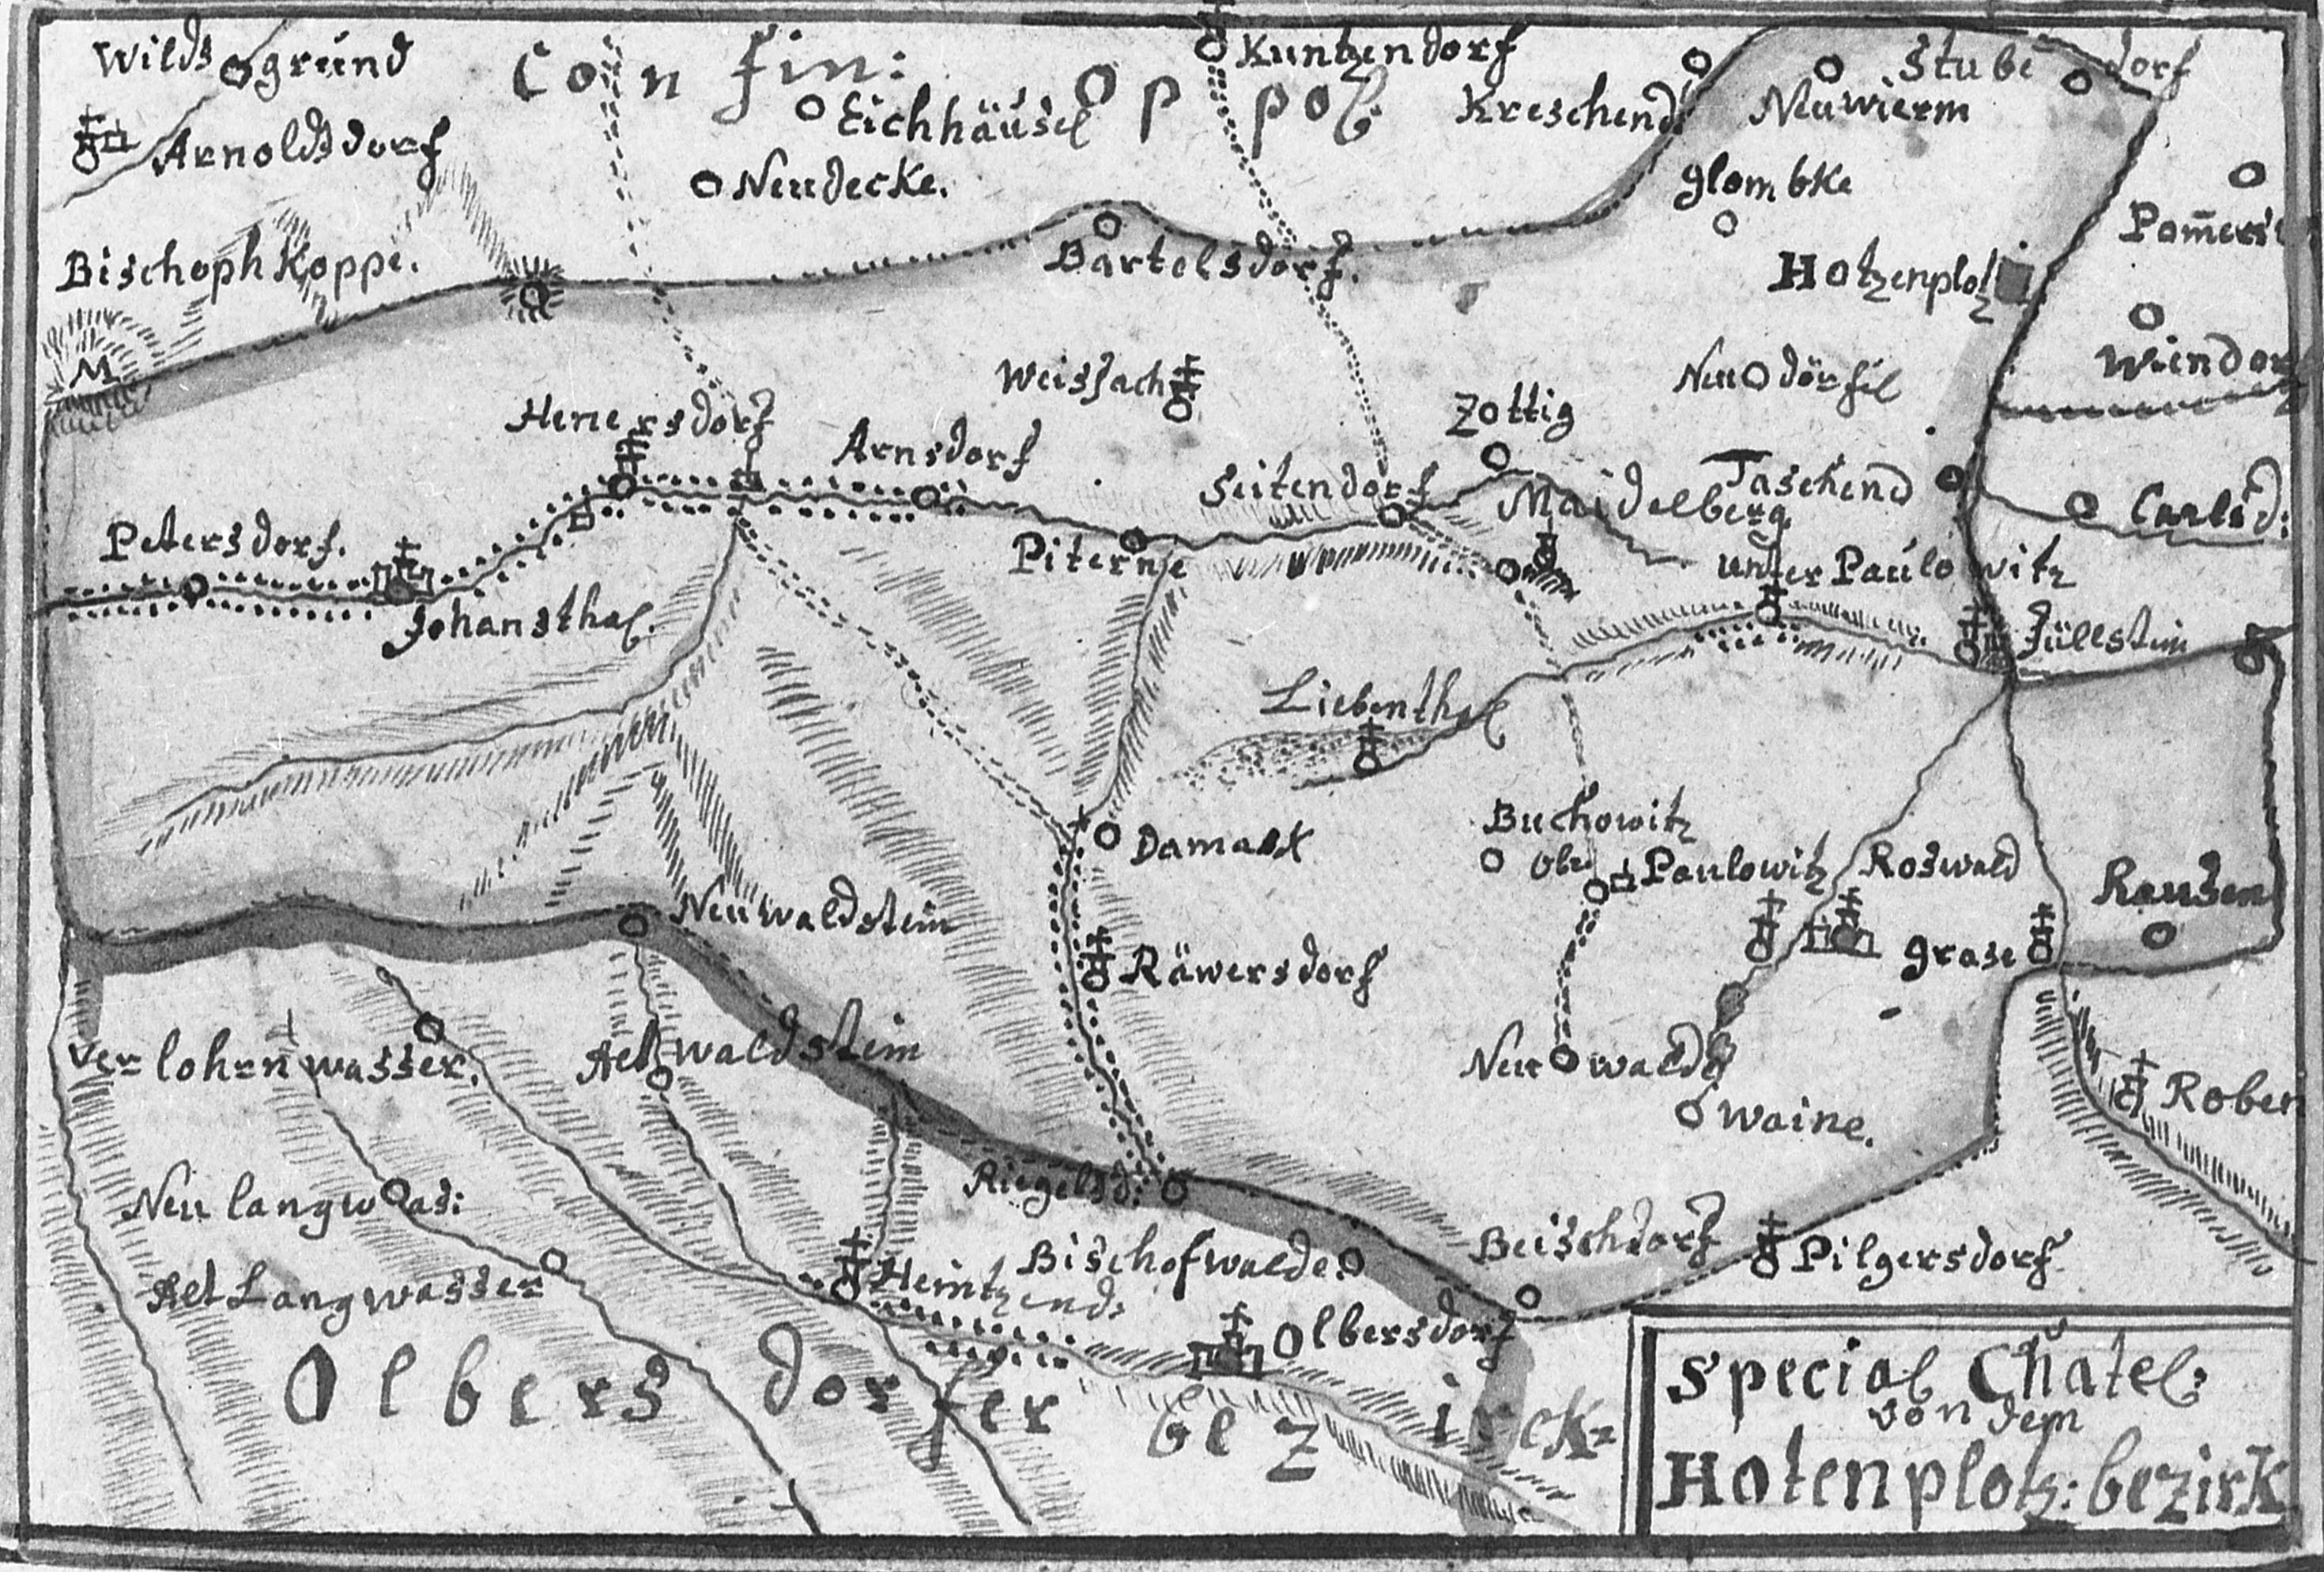 Wildsgrund
Con fin: Oppol
Kuntzendorf
Stubendorf
Eichhäusel
Kreschend
Neuwierm
Arnoldsdorf
Neudecke.
glombke
Pom̄ers
Bischoph Koppe.
Bartelsdorf.
Hotzenplotz
Wiendor
Weissach
Neudörfel
M
Henersdorf
Arnsdorf
Zottig
Seitendorf
Maidelberg
Taschend
Carlsd:
Petersdorf.
Piternje
unter Paulowitz
Johansthal.
Füllstein
Liebenthal
Damask
Buchowitz
Obr Paulowitz
Roswald
Rausen
Neuwaldstein
Räwersdorf
grase
Verlohrnwasser.
Alt waldstein
Neuwalde
Waine.
Rober
Neu langwas:
Riegelsd:
Alt Langwasser
Heintzend:
Bischofwalde.
Beischdorf
Pilgersdorf
Olbersdorf
Olbersdorfer bezirck
Special Chatel:
von dem
Hotenplotz: bezirk